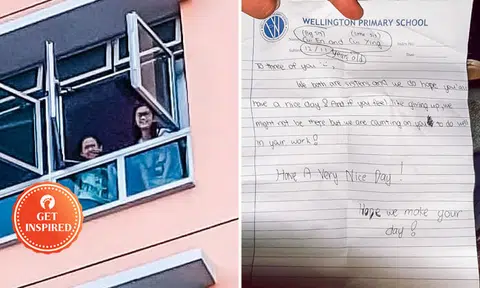 GET
INSPIRED
WELLINGTON PRIMARY SCHOOL
(big sis) (small sis)
En and Cui Xing
To three of you
We both are sisters and we do hope you
have a nice day! And if you feel like giving up, we
might not be there but we are counting on you to do well
in your work!
Have A Very Nice Day!
Hope we make your
day!